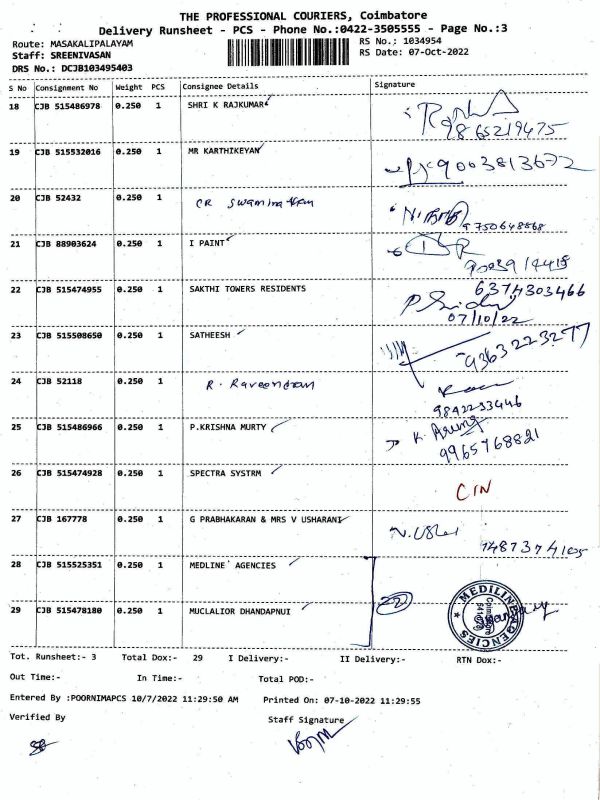 THE PROFESSIONAL COURIERS, Coimbatore
Delivery Runsheet - PCS - Phone No.:0422-3505555 - Page No.:3
Route: MASAKALIPALAYAM
RS No.: 1034954
Staff: SREENIVASAN
RS Date: 07-Oct-2022
DRS No.: DCJB103495403
S No Consignment No Weight PCS Consignee Details Signature
18 CJB 515486978 0.250 1 SHRI K RAJKUMAR
9865219475
19 CJB 515532016 0.250 1 MR KARTHIKEYAN 9003813672
20 CJB 52432 0.250 1 CR Swaminathan
9750648868
21 CJB 88903624 0.250 1 I PAINT
22 CJB 515474955 0.250 1 SAKTHI TOWERS RESIDENTS 6374303466
07/10/22
23 CJB 515508650 0.250 1 SATHEESH 9363223277
24 CJB 52118 0.250 1 R. Raveendran
9842233446
25 CJB 515486966 0.250 1 P.KRISHNA MURTY K. Arun
9965768821
26 CJB 515474928 0.250 1 SPECTRA SYSTRM
CIN
27 CJB 167778 0.250 1 G PRABHAKARAN & MRS V USHARANI N. Usha
28 CJB 515525351 0.250 1 MEDLINE AGENCIES
MEDILINE AGENCIES
29 CJB 515478180 0.250 1 MUCLALIOR DHANDAPNUI
Tot. Runsheet:- 3 Total Dox:- 29 I Delivery:- II Delivery:- RTN Dox:-
Out Time:- In Time:- Total POD:-
Entered By :POORNIMAPCS 10/7/2022 11:29:50 AM Printed On: 07-10-2022 11:29:55
Verified By Staff Signature